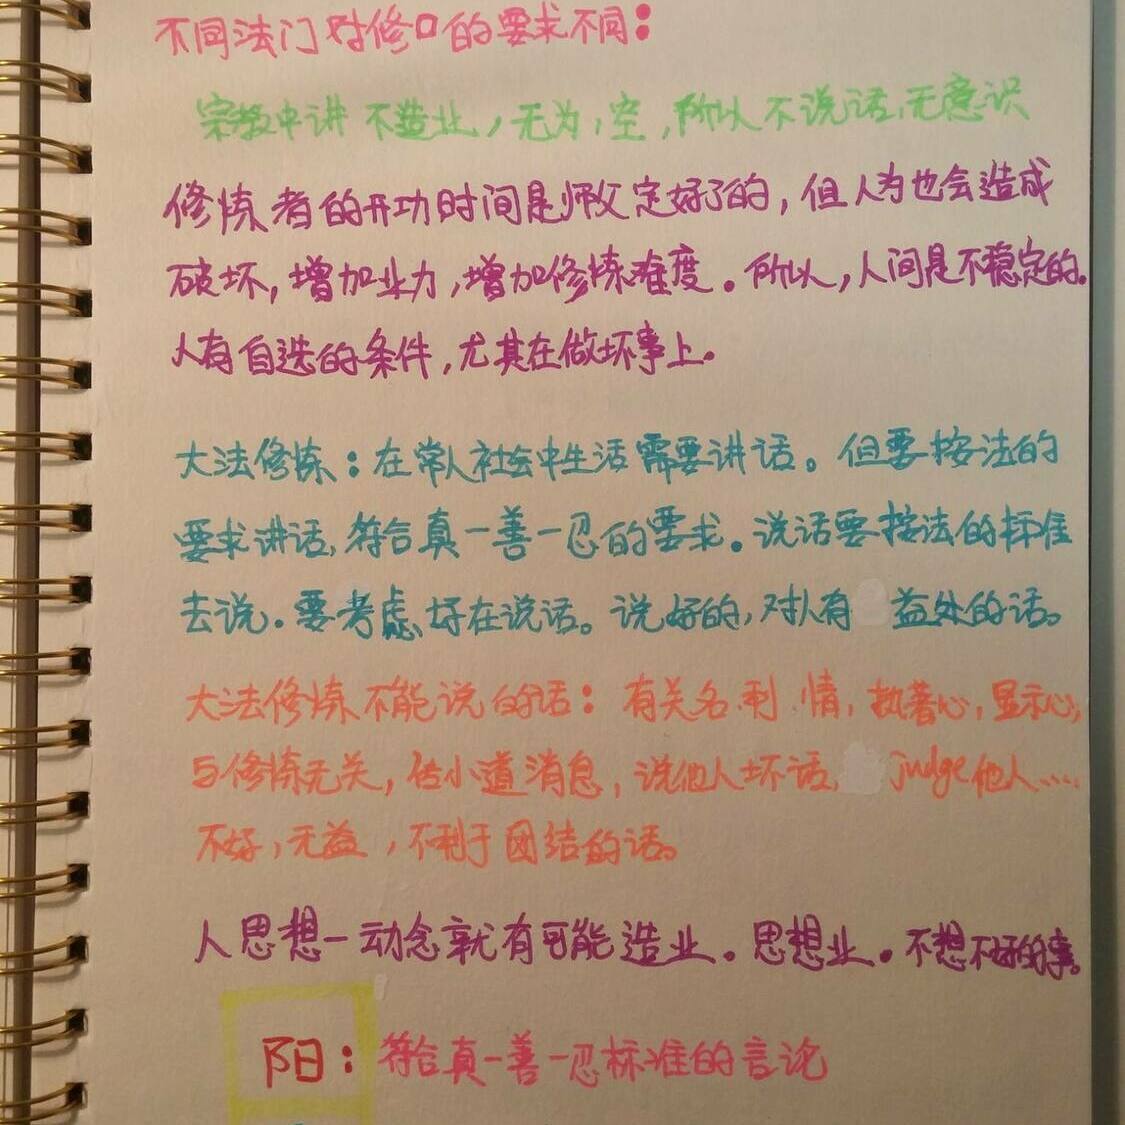 不同法门对修口的要求不同:
宗教中讲 不造业,无为,空,所以不说话,无意识
修炼者的开功时间是师父定好了的,但人为也会造成
破坏,增加业力,增加修炼难度。所以,人间是不稳定的。
人有自选的条件,尤其在做坏事上。
大法修炼:在常人社会中生活需要讲话。但要按法的
要求讲话,符合真一善一忍的要求。说话要按法的标准
去说。要考虑好在说话。说好的,对人有 益处的话。
大法修炼不能说的话:有关名.利.情,执著心,显示心,
与修炼无关,传小道消息,说他人坏话, judge他人....
不好,无益,不利于团结的话。
人思想一动念就有可能造业。思想业。不想不好的事。
阳:符合真一善一忍标准的言论